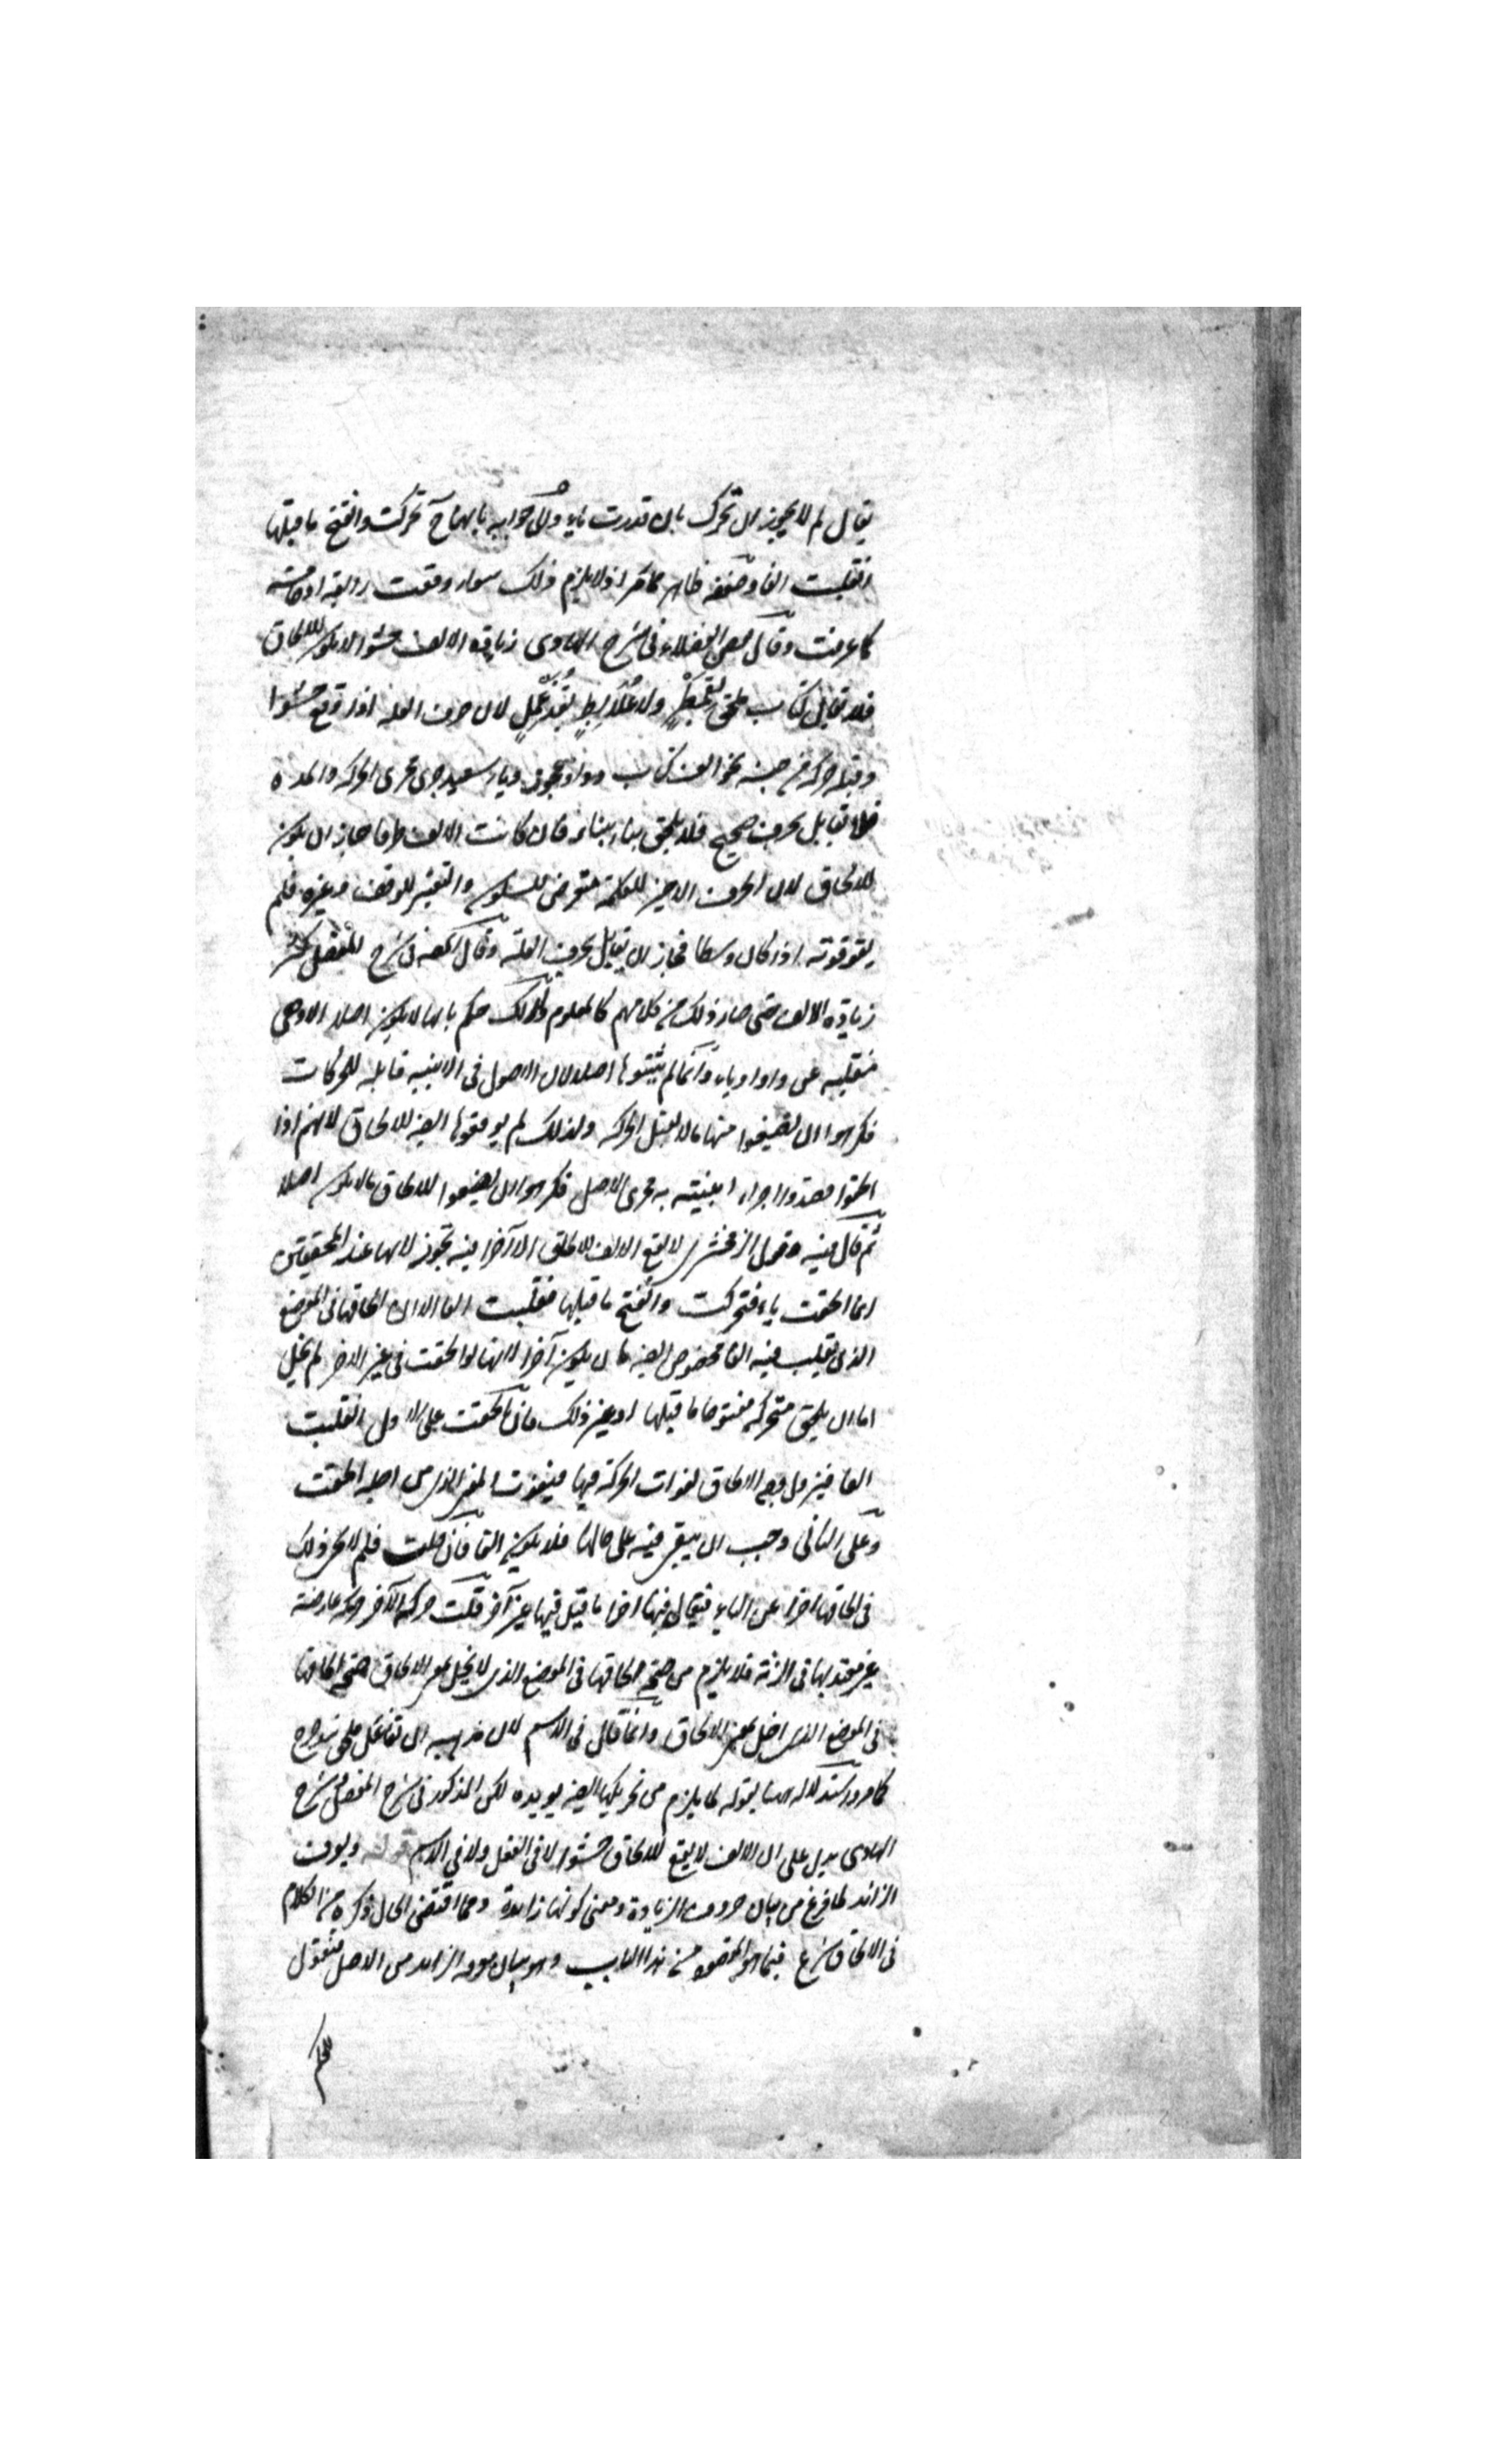 يقال لم لا يجوز ان تحرك بان قدرت ياء ولان جوابه بانها ح تحركت وانفتح ما قبلها
انقلبت الفا وضعفه ظاهر مما مر اذ لا يلزم ذلك سواء وقعت رابعة او خامسة
كما عرفت وقال بعض الفضلاء فى شرح الهادى زيادة الالف حشوا لا يكون للالحاق
فلا تقابل كتاب ملحق بقمطر ولا علابط بقذعمل لان حرف العلة اذا وقع حشوا
وقبله حركة من جنسه نحو الف كتاب وواو عجوز وياء سعيد جرى مجرى الحركة والمدة
فلا تقابل بحرف صحيح فلا يلحق بناء ببناء فان كانت الالف طرفا جاز ان يكون
للالحاق لان الحرف الاخير للكلمة متعرض للسكون والتغير للوقف وغيره فلم
يقو قوته اذا كان وسطا فجاز ان يقابل بحرف العلة وقال المصنف فى شرح المفصل كثر
زيادة الالف حتى صار ذلك من كلامهم كالمعلوم ولذلك حكم بانها لا يكون اصلا الا وهى
منقلبة عن واو او ياء وانما لم يثبتوها اصلا لان الاصول فى الابنية قابلة للحركات
فكرهوا ان يضعوا منها ما لا يقبل الحركة ولذلك لم يوقعوها ايضا للالحاق لانهم اذا
الحقوا قصدوا اجراء ابنيته به مجرى الاصل فكرهوا ان يضعوا للالحاق ما لا يكون اصلا
ثم قال فيه وقول الزمخشرى لا يقع الالف للالحاق الا آخرا فيه تجوز لانها عند المحققين
انما الحقت ياء فتحركت وانفتح ما قبلها فقلبت الفا الا ان الحاقها فى الموضع
الذى تقلب فيه الفا مخصوص ايضا بان يكون آخرا لانها لو الحقت فى غير الاخر لم يخل
اما ان يلحق متحركة مفتوحا ما قبلها او غير ذلك فان الحقت على الاول انقلبت
الفا فيزول وجه الالحاق لفوات الحركة فيها فيفوت المعنى الذى من اجله الحقت
وعلى الثانى وجب ان يبقى فيه على حالها فلا يكون الفا فان قلت فلم لا يجر ذلك
فى الحاقها اخرا عن الياء فيقال فيها اخرا ما قيل فيها غير آخر قلت حركة الآخر حركة عارضة
غير معتد بها فى الزنة فلا يلزم من صحة الحاقها فى الموضع الذى لا يخل بمعنى الالحاق صحة الحاقها
فى الموضع الذى اخل بمعنى الالحاق وانما قال فى الاسم لان مذهبه ان تفاعل ملحق بتدحرج
كما مر واستدلاله هنا بقوله لما يلزم من تحريكها ايضا يويده لكن المذكور فى شرح المفصل وشرح
الهادى يدل على ان الالف لا يقع للالحاق حشوا لا فى الفعل ولا فى الاسم قوله ويعرف
الزائد لما فرغ من بيان حروف الزيادة ومعنى كونها زايدة ومما اقتضى الحال ذكره من الكلام
فى الالحاق شرع فيما هو المقصود من هذا الباب وهو بيان معرفة الزايد من الاصل فنقول
للحكم